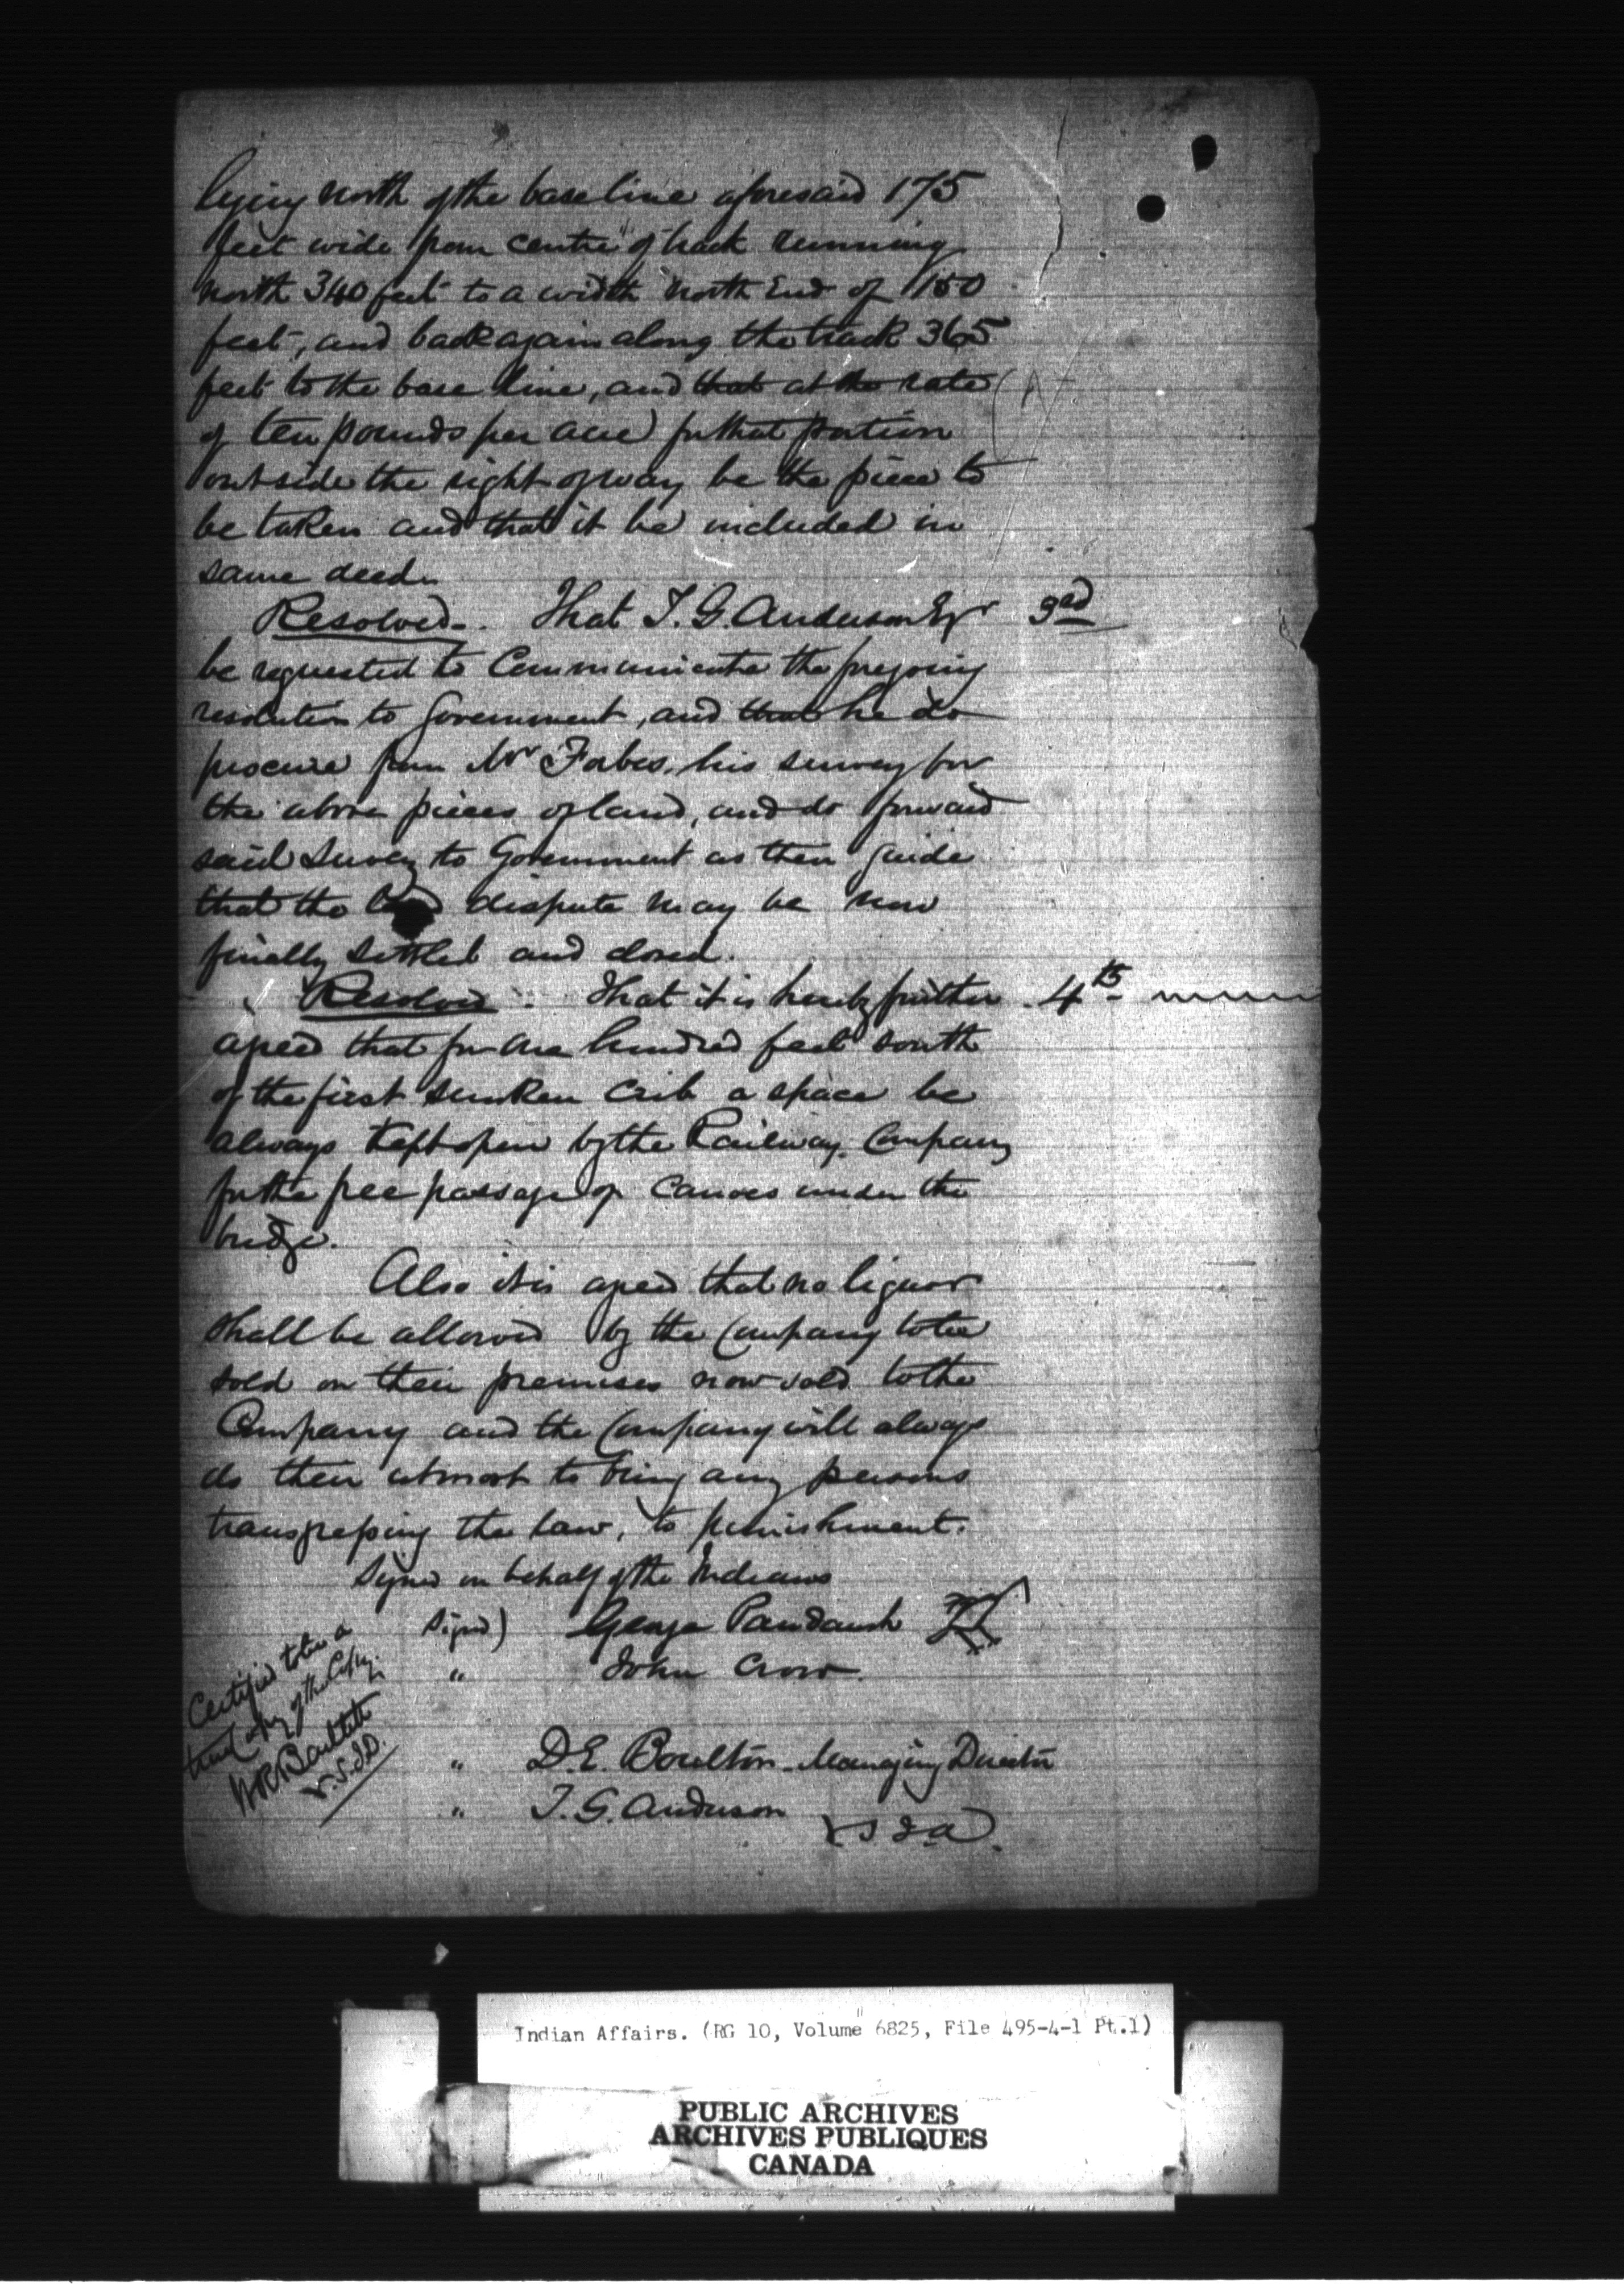 lying north of the base line aforesaid 175
feet wide from centre of track running
north 340 feet to a width north End of 150
feet, and back again along the track 365
feet to the base line, and that at the rate
of ten pounds per acre for that portion
outside the right of way be the piece to
be taken and that it be included in
same deed.
Resolved. That T. G. Anderson Esqr 3rd
be requested to Communicate the foregoing
resolution to Government, and that he do
procure from Mr Forbes, his survey for
the above pieces of land, and do forward
said survey to Government as their guide
that the dispute may be now
finally settled and closed.
Resolved. That it is hereby further 4th
agreed that for one hundred feet south
of the first sunken crib a space be
always kept open by the Railway Company
for the free passage of Canoes under the
bridge.
Also it is agreed that no liquor
shall be allowed by the Company to be
sold on their premises now sold to the
Company and the Company will always
do their utmost to bring any persons
transgressing the law, to punishment.
Signed on behalf of the Indians
Signed) George Paudaush
" John Crow.
Certified to be a
true copy of the Copy.
W R Bartlett
V.S.I.A.
" D. E. Boulton Managing Director
" T. G. Anderson
V S I A.
Indian Affairs. (RG 10, Volume 6825, File 495-4-1 Pt.1)
PUBLIC ARCHIVES
ARCHIVES PUBLIQUES
CANADA